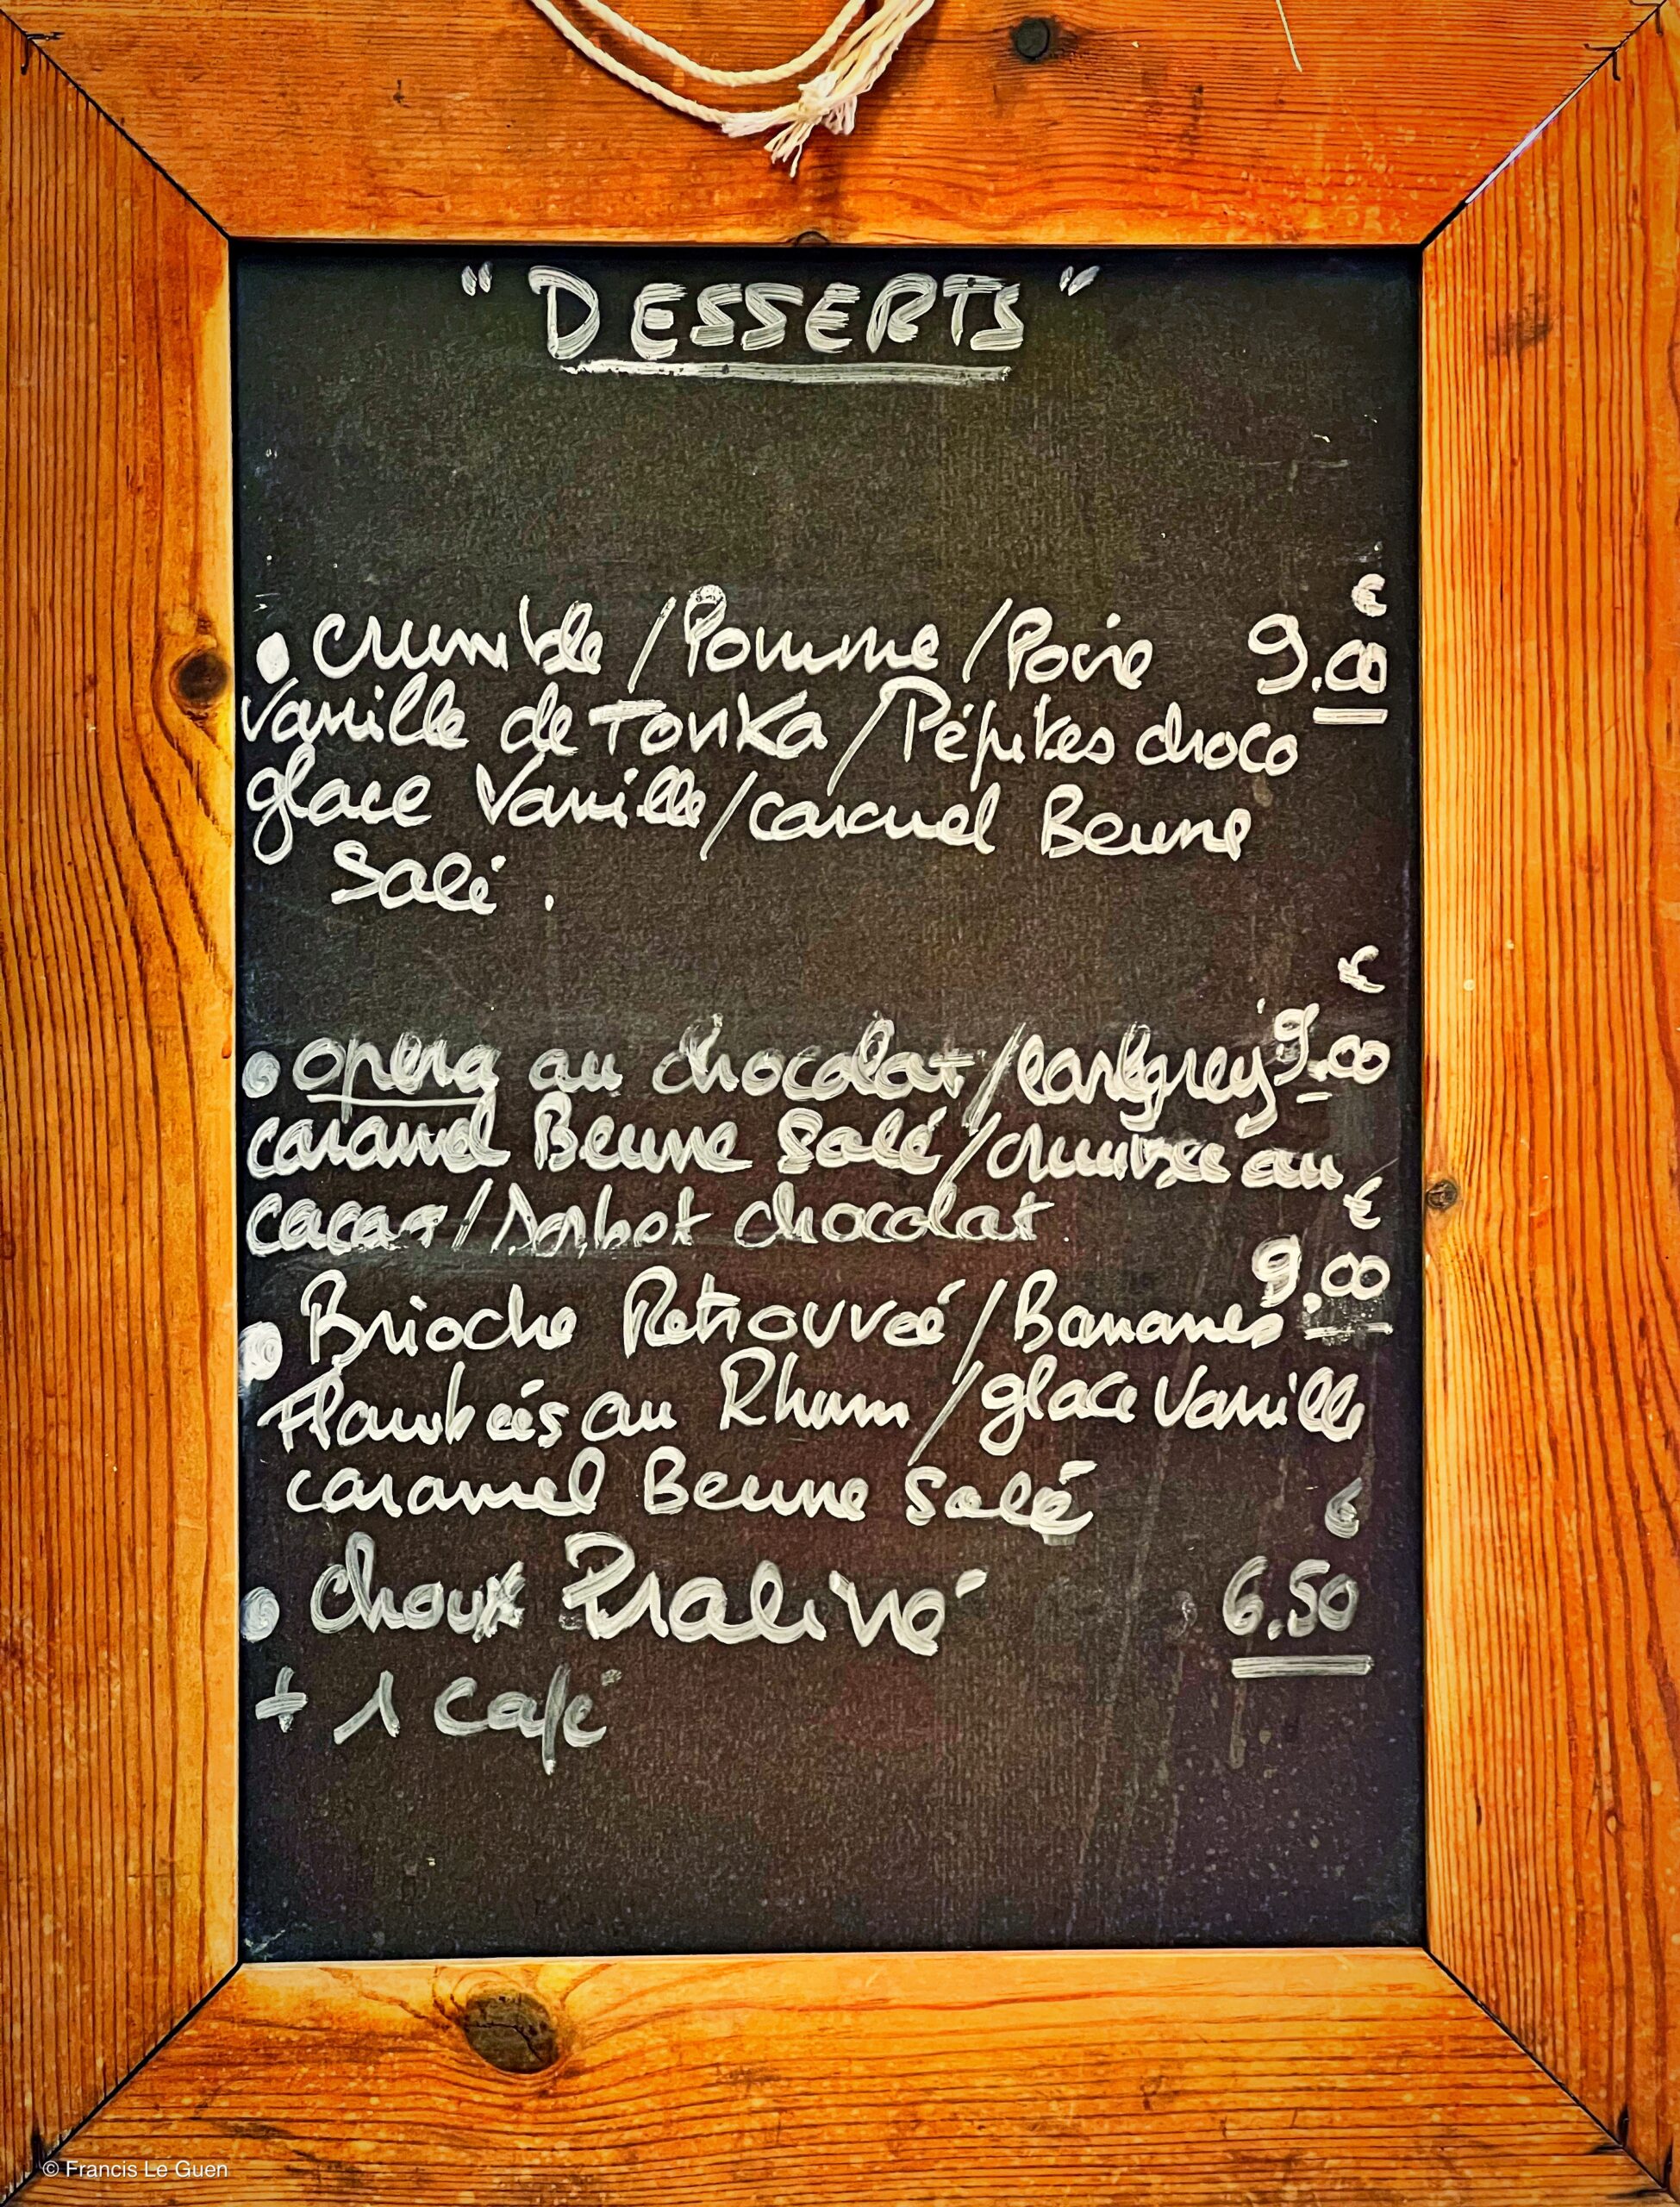 "DESSERTS"
• Crumble / Pomme / Poire 9.00 €
Vanille de Tonka / Pépites choco
glace Vanille / caramel Beurre
Salé.
• opera au chocolat / earlgrey 9.00 €
caramel Beurre Salé / crumble au
cacao / Sorbet chocolat
• Brioche Retrouvée / Bananes 9.00 €
Flambées au Rhum / glace Vanille
caramel Beurre Salé
• choux Praliné 6.50 €
+ 1 Café
© Francis Le Guen